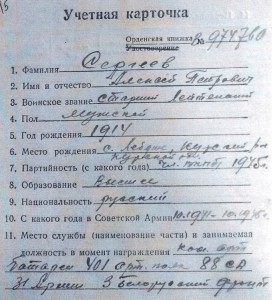 Учетная карточка
Орденская книжка
Удостоверение № 974760
1. Фамилия Сергеев
2. Имя и отчество Петрович
3. Воинское звание старший лейтенант
4. Пол Мужской
5. Год рождения 1914
6. Место рождения с. Курский
Курской
7. Партийность (с какого года) чл.
8. Образование Высшее
9. Национальность русский
10. С какого года в Советской Армии
11. Место службы (наименование части) и занимаемая
должность в момент награждения ком. арт
батареи 401 арт. полк 88 СД
31 Армии 3 Белорусский фронт